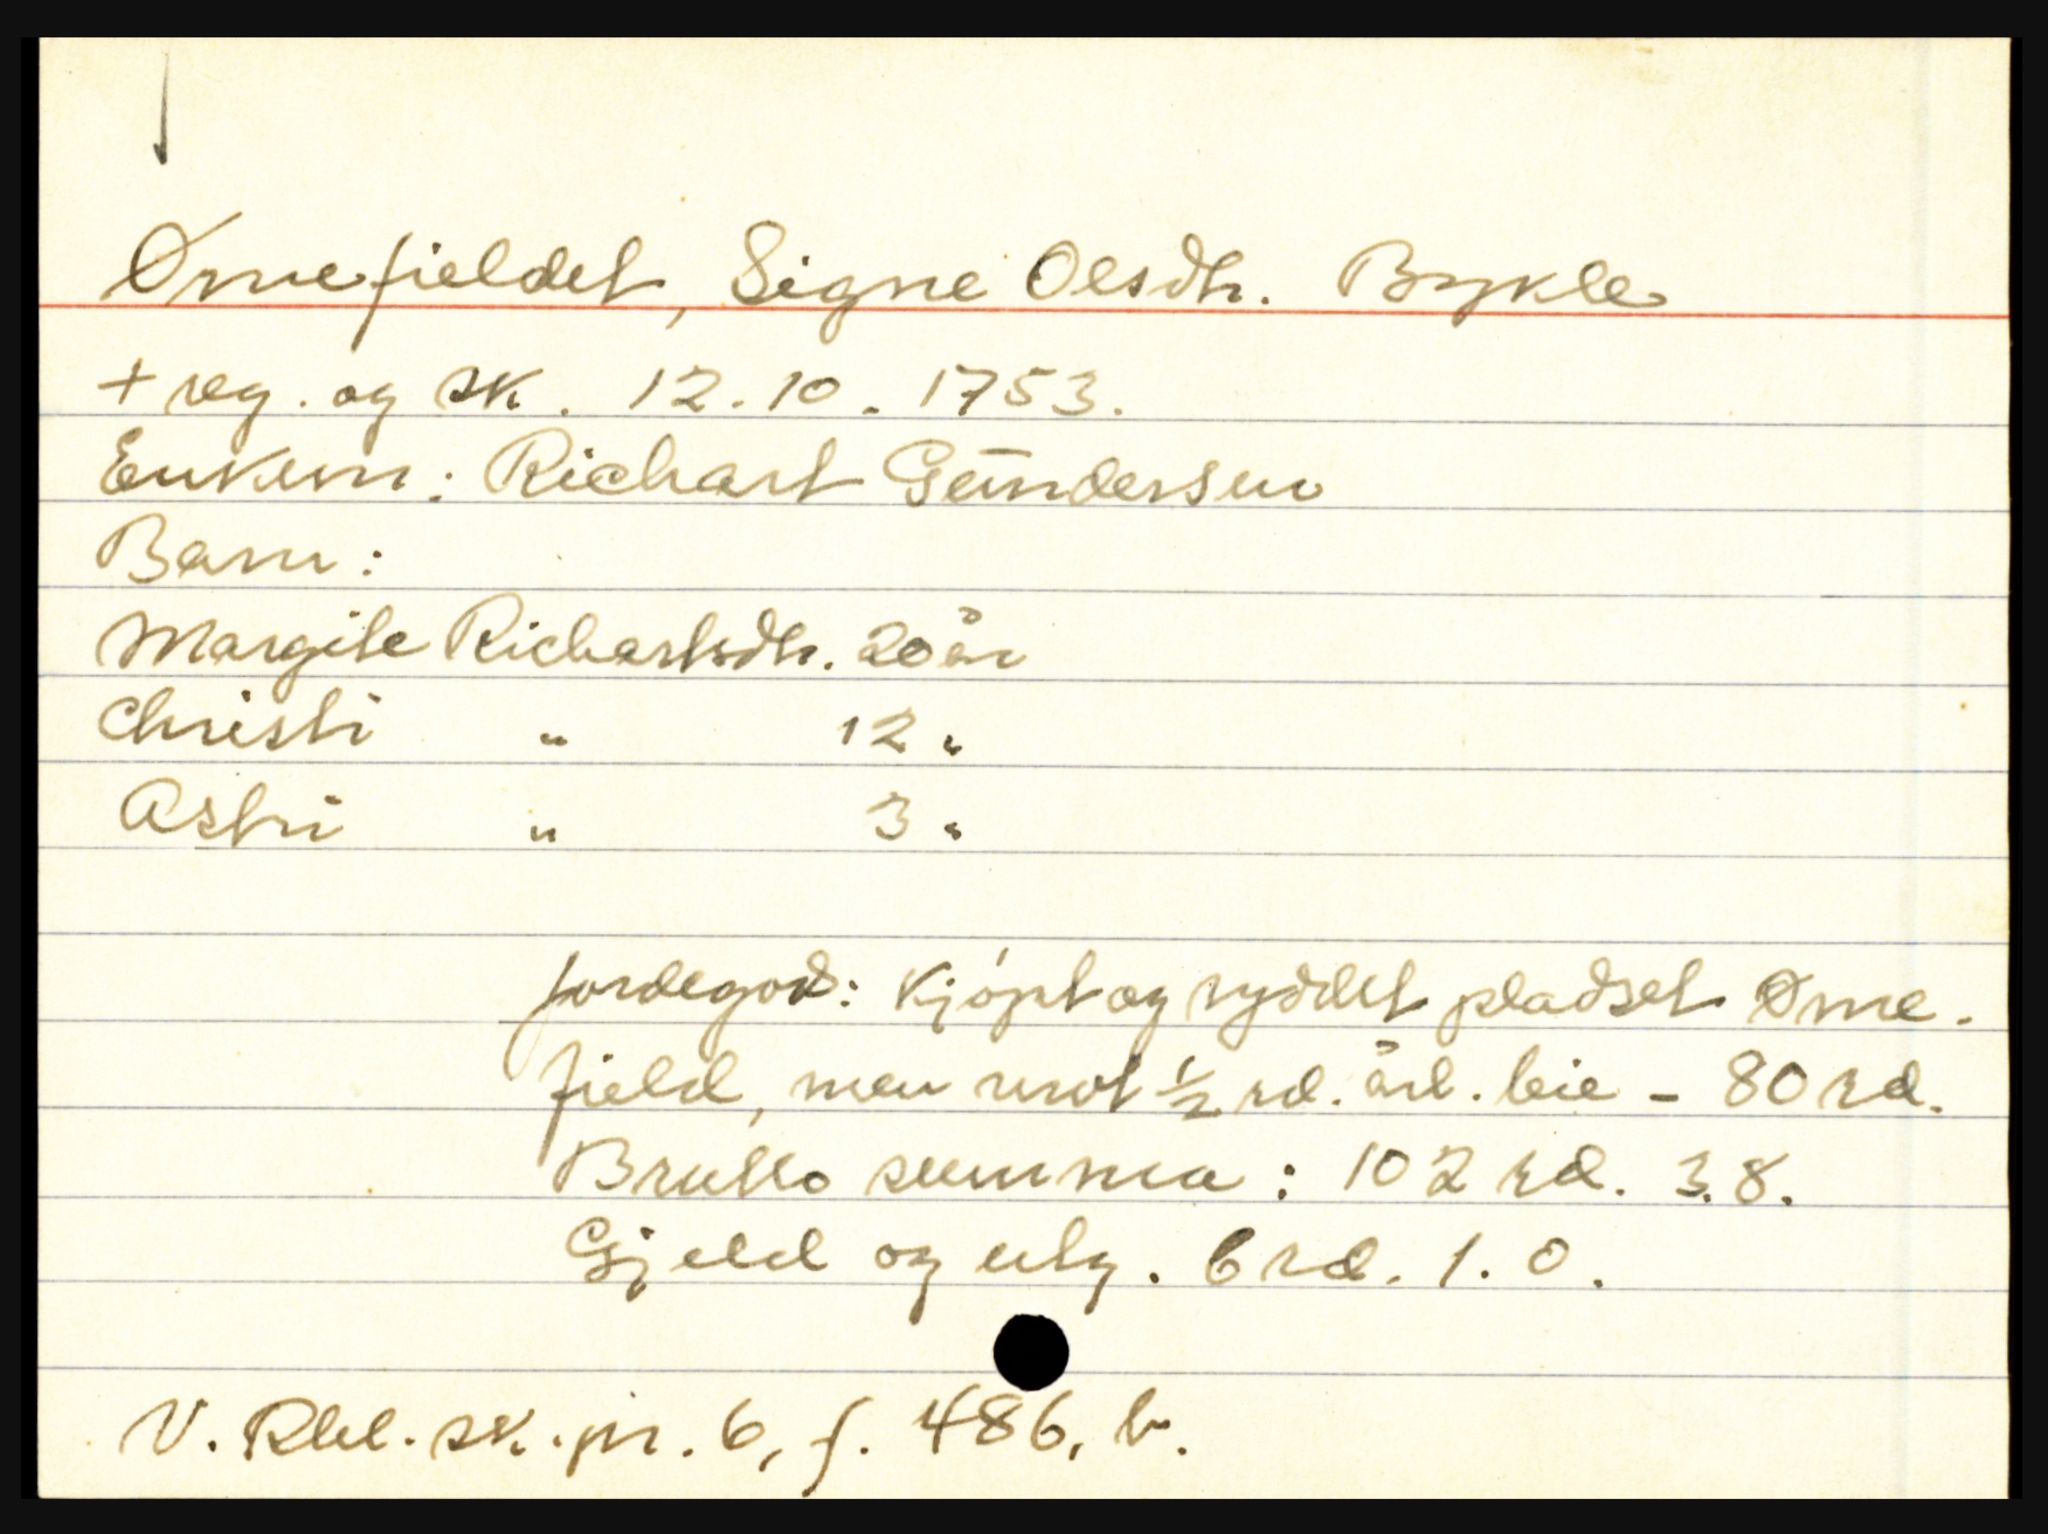 Ørnefieldet, Signe Olsdtr. Bykle
+ reg. og sk. 12.10.1753.
Enkem: Richart Gundersen
Barn:
Margite Richartsdtr. 20 år
Christi " 12 "
Astri " 3 "
Jordegods: Kjøpt og ryddet pladset Ørne-
field, men mot ½ rd. årl. leie - 80 rd.
Brutto summa: 102 rd. 3.8.
Gjeld og utg. 6 rd. 1.0.
V. Rbl. sk. pr. 6, f. 486, b.